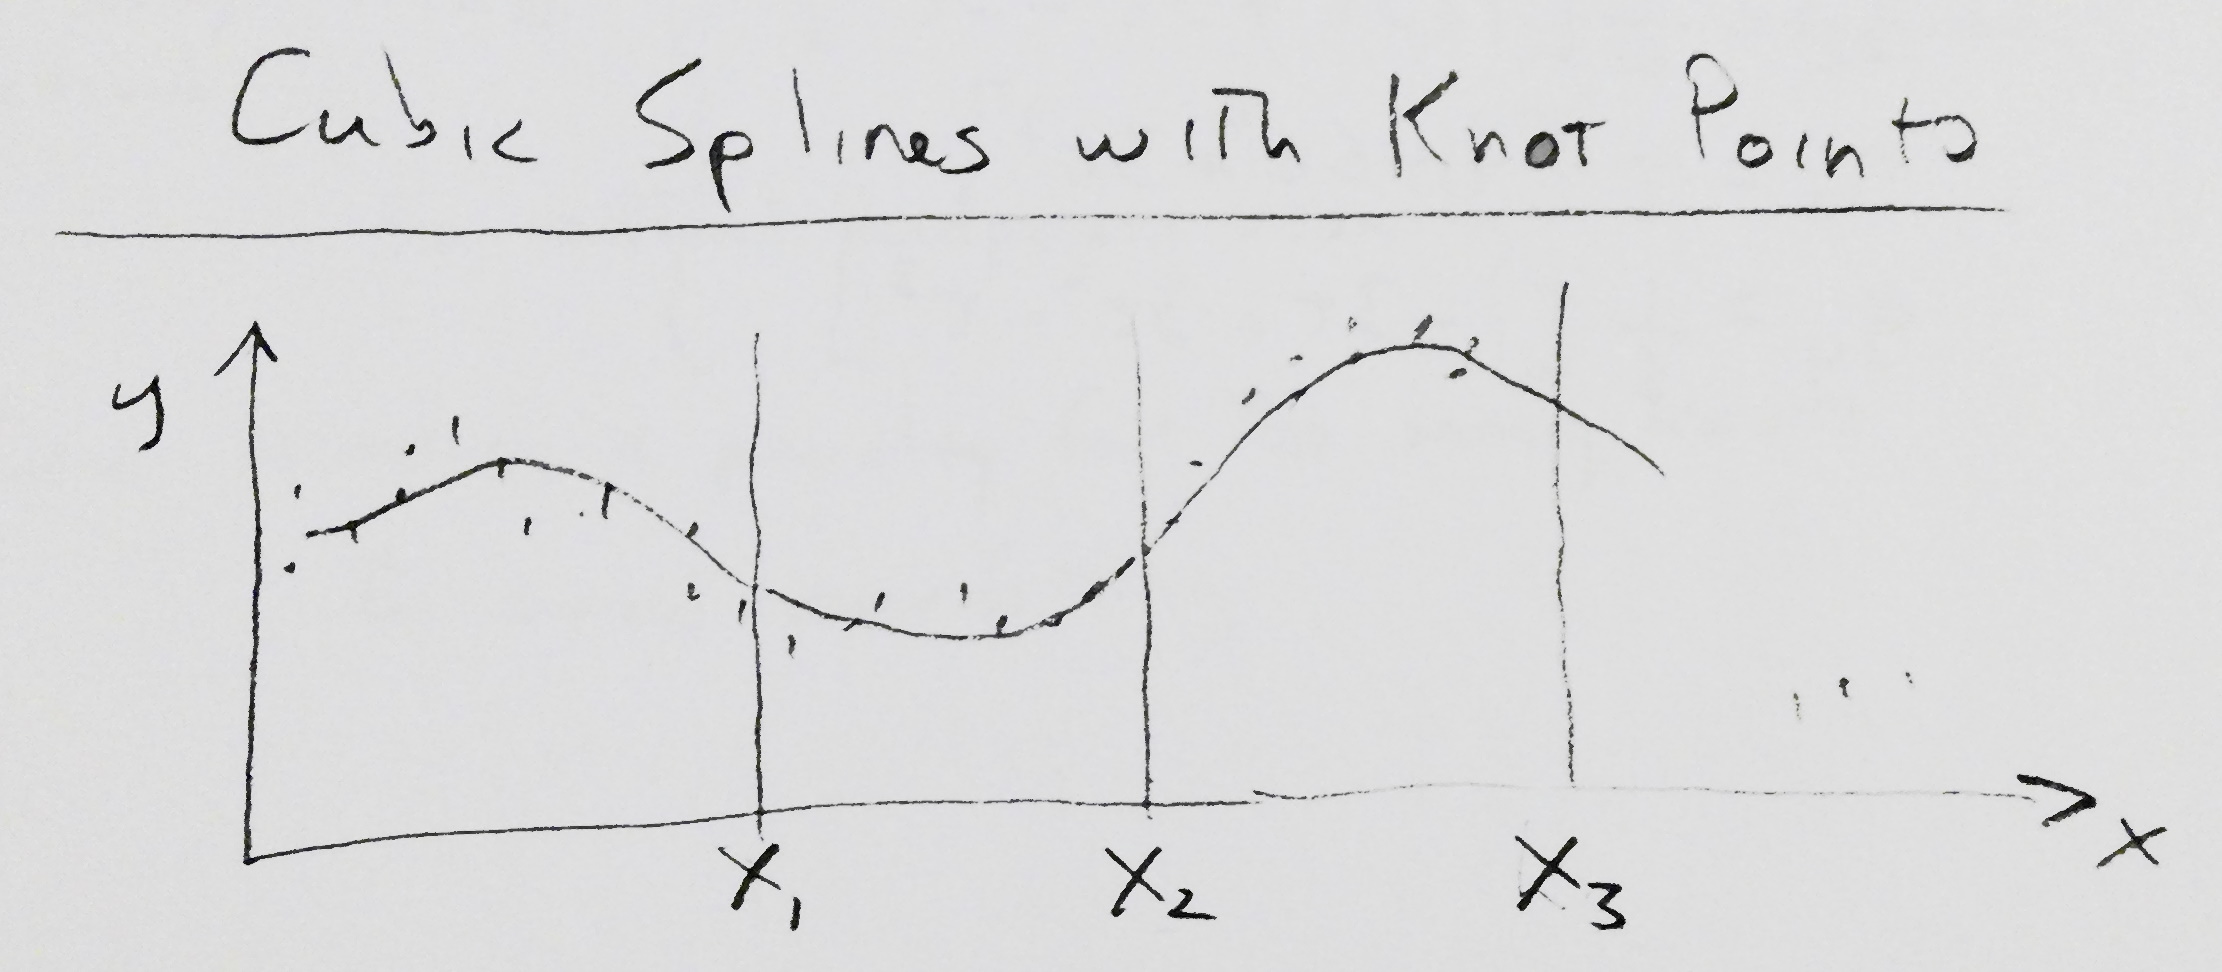 Cubic Splines with Knot Points
y
X₁ X₂ X₃ x